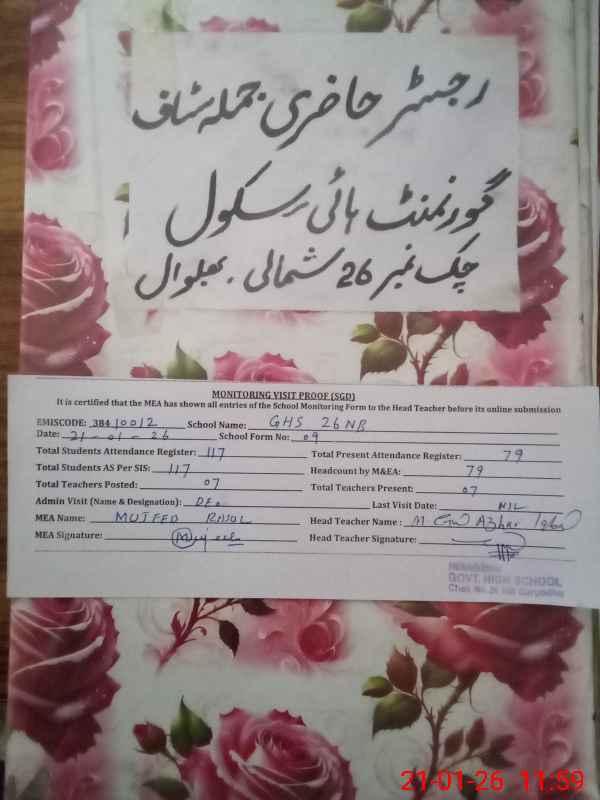 رجسٹر حاضری جملہ سٹاف
گورنمنٹ ہائی سکول
چک نمبر 26 شمالی . بھلوال
MONITORING VISIT PROOF (SGD)
It is certified that the MEA has shown all entries of the School Monitoring Form to the Head Teacher before its online submission
EMISCODE: 38410012 School Name: GHS 26 NB
Date: 21-01-26 School Form No: 09
Total Students Attendance Register: 117 Total Present Attendance Register: 79
Total Students AS Per SIS: 117 Headcount by M&EA: 79
Total Teachers Posted: 07 Total Teachers Present: 07
Admin Visit (Name & Designation): DEO Last Visit Date: NIL
MEA Name: Head Teacher Name: M Azhar Iqbal
MEA Signature: Head Teacher Signature:
Headmaster
GOVT. HIGH SCHOOL
Chak No. 26 NB Sargodha
21-01-26 11:59